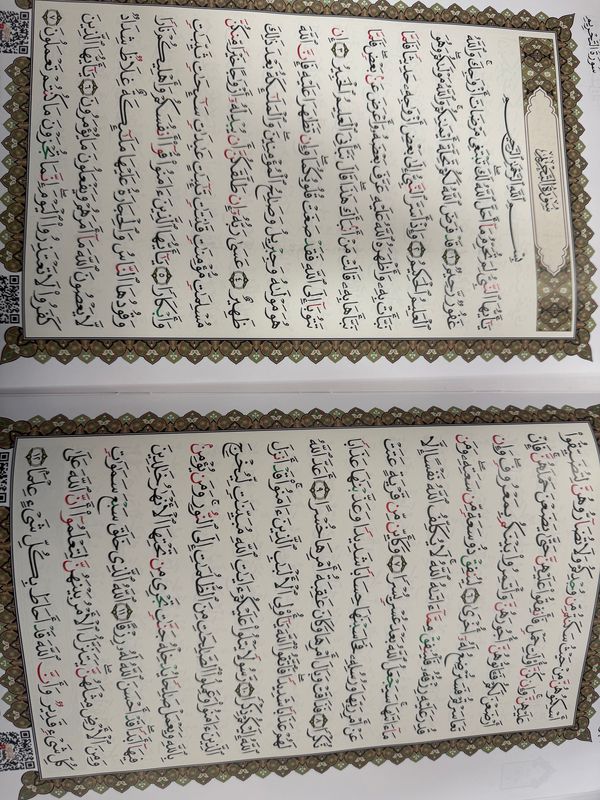 أَسۡكِنُوهُنَّ مِنۡ حَيۡثُ سَكَنتُم مِّن وُجۡدِكُمۡ وَلَا تُضَآرُّوهُنَّ لِتُضَيِّقُواْ
عَلَيۡهِنَّۚ وَإِن كُنَّ أُوْلَٰتِ حَمۡلٖ فَأَنفِقُواْ عَلَيۡهِنَّ حَتَّىٰ يَضَعۡنَ حَمۡلَهُنَّۚ فَإِنۡ
أَرۡضَعۡنَ لَكُمۡ فَـَٔاتُوهُنَّ أُجُورَهُنَّ وَأۡتَمِرُواْ بَيۡنَكُم بِمَعۡرُوفٖۖ وَإِن
تَعَاسَرۡتُمۡ فَسَتُرۡضِعُ لَهُۥٓ أُخۡرَىٰ ٦ لِيُنفِقۡ ذُو سَعَةٖ مِّن سَعَتِهِۦۖ وَمَن
قُدِرَ عَلَيۡهِ رِزۡقُهُۥ فَلۡيُنفِقۡ مِمَّآ ءَاتَىٰهُ ٱللَّهُۚ لَا يُكَلِّفُ ٱللَّهُ نَفۡسًا إِلَّا
مَآ ءَاتَىٰهَاۚ سَيَجۡعَلُ ٱللَّهُ بَعۡدَ عُسۡرٖ يُسۡرٗا ٧ وَكَأَيِّن مِّن قَرۡيَةٍ عَتَتۡ
عَنۡ أَمۡرِ رَبِّهَا وَرُسُلِهِۦ فَحَاسَبۡنَٰهَا حِسَابٗا شَدِيدٗا وَعَذَّبۡنَٰهَا عَذَابٗا
نُّكۡرٗا ٨ فَذَاقَتۡ وَبَالَ أَمۡرِهَا وَكَانَ عَٰقِبَةُ أَمۡرِهَا خُسۡرًا ٩ أَعَدَّ ٱللَّهُ
لَهُمۡ عَذَابٗا شَدِيدٗاۖ فَٱتَّقُواْ ٱللَّهَ يَٰٓأُوْلِي ٱلۡأَلۡبَٰبِ ٱلَّذِينَ ءَامَنُواْۚ قَدۡ أَنزَلَ
ٱللَّهُ إِلَيۡكُمۡ ذِكۡرٗا ١٠ رَّسُولٗا يَتۡلُواْ عَلَيۡكُمۡ ءَايَٰتِ ٱللَّهِ مُبَيِّنَٰتٖ لِّيُخۡرِجَ
ٱلَّذِينَ ءَامَنُواْ وَعَمِلُواْ ٱلصَّٰلِحَٰتِ مِنَ ٱلظُّلُمَٰتِ إِلَى ٱلنُّورِۚ وَمَن يُؤۡمِنۢ
بِٱللَّهِ وَيَعۡمَلۡ صَٰلِحٗا يُدۡخِلۡهُ جَنَّٰتٖ تَجۡرِي مِن تَحۡتِهَا ٱلۡأَنۡهَٰرُ خَٰلِدِينَ
فِيهَآ أَبَدٗاۖ قَدۡ أَحۡسَنَ ٱللَّهُ لَهُۥ رِزۡقًا ١١ ٱللَّهُ ٱلَّذِي خَلَقَ سَبۡعَ سَمَٰوَٰتٖ
وَمِنَ ٱلۡأَرۡضِ مِثۡلَهُنَّۖ يَتَنَزَّلُ ٱلۡأَمۡرُ بَيۡنَهُنَّ لِتَعۡلَمُوٓاْ أَنَّ ٱللَّهَ عَلَىٰ
كُلِّ شَيۡءٖ قَدِيرٞ وَأَنَّ ٱللَّهَ قَدۡ أَحَاطَ بِكُلِّ شَيۡءٍ عِلۡمَۢا ١٢
سُورَةُ التَّحۡرِيمِ
سُورَةُ التَّحۡرِيمِ
بِسۡمِ ٱللَّهِ ٱلرَّحۡمَٰنِ ٱلرَّحِيمِ
يَٰٓأَيُّهَا ٱلنَّبِيُّ لِمَ تُحَرِّمُ مَآ أَحَلَّ ٱللَّهُ لَكَۖ تَبۡتَغِي مَرۡضَاتَ أَزۡوَٰجِكَۚ وَٱللَّهُ
غَفُورٞ رَّحِيمٞ ١ قَدۡ فَرَضَ ٱللَّهُ لَكُمۡ تَحِلَّةَ أَيۡمَٰنِكُمۡۚ وَٱللَّهُ مَوۡلَىٰكُمۡۖ وَهُوَ
ٱلۡعَلِيمُ ٱلۡحَكِيمُ ٢ وَإِذۡ أَسَرَّ ٱلنَّبِيُّ إِلَىٰ بَعۡضِ أَزۡوَٰجِهِۦ حَدِيثٗا فَلَمَّا
نَبَّأَتۡ بِهِۦ وَأَظۡهَرَهُ ٱللَّهُ عَلَيۡهِ عَرَّفَ بَعۡضَهُۥ وَأَعۡرَضَ عَنۢ بَعۡضٖۖ فَلَمَّا
نَبَّأَهَا بِهِۦ قَالَتۡ مَنۡ أَنۢبَأَكَ هَٰذَاۖ قَالَ نَبَّأَنِيَ ٱلۡعَلِيمُ ٱلۡخَبِيرُ ٣ إِن
تَتُوبَآ إِلَى ٱللَّهِ فَقَدۡ صَغَتۡ قُلُوبُكُمَاۖ وَإِن تَظَٰهَرَا عَلَيۡهِ فَإِنَّ ٱللَّهَ
هُوَ مَوۡلَىٰهُ وَجِبۡرِيلُ وَصَٰلِحُ ٱلۡمُؤۡمِنِينَۖ وَٱلۡمَلَٰٓئِكَةُ بَعۡدَ ذَٰلِكَ
ظَهِيرٌ ٤ عَسَىٰ رَبُّهُۥٓ إِن طَلَّقَكُنَّ أَن يُبۡدِلَهُۥٓ أَزۡوَٰجًا خَيۡرٗا مِّنكُنَّ
مُسۡلِمَٰتٖ مُّؤۡمِنَٰتٖ قَٰنِتَٰتٖ تَٰٓئِبَٰتٍ عَٰبِدَٰتٖ سَٰٓئِحَٰتٖ ثَيِّبَٰتٖ
وَأَبۡكَارٗا ٥ يَٰٓأَيُّهَا ٱلَّذِينَ ءَامَنُواْ قُوٓاْ أَنفُسَكُمۡ وَأَهۡلِيكُمۡ نَارٗا
وَقُودُهَا ٱلنَّاسُ وَٱلۡحِجَارَةُ عَلَيۡهَا مَلَٰٓئِكَةٌ غِلَاظٞ شِدَادٞ
لَّا يَعۡصُونَ ٱللَّهَ مَآ أَمَرَهُمۡ وَيَفۡعَلُونَ مَا يُؤۡمَرُونَ ٦ يَٰٓأَيُّهَا ٱلَّذِينَ
كَفَرُواْ لَا تَعۡتَذِرُواْ ٱلۡيَوۡمَۖ إِنَّمَا تُجۡزَوۡنَ مَا كُنتُمۡ تَعۡمَلُونَ ٧